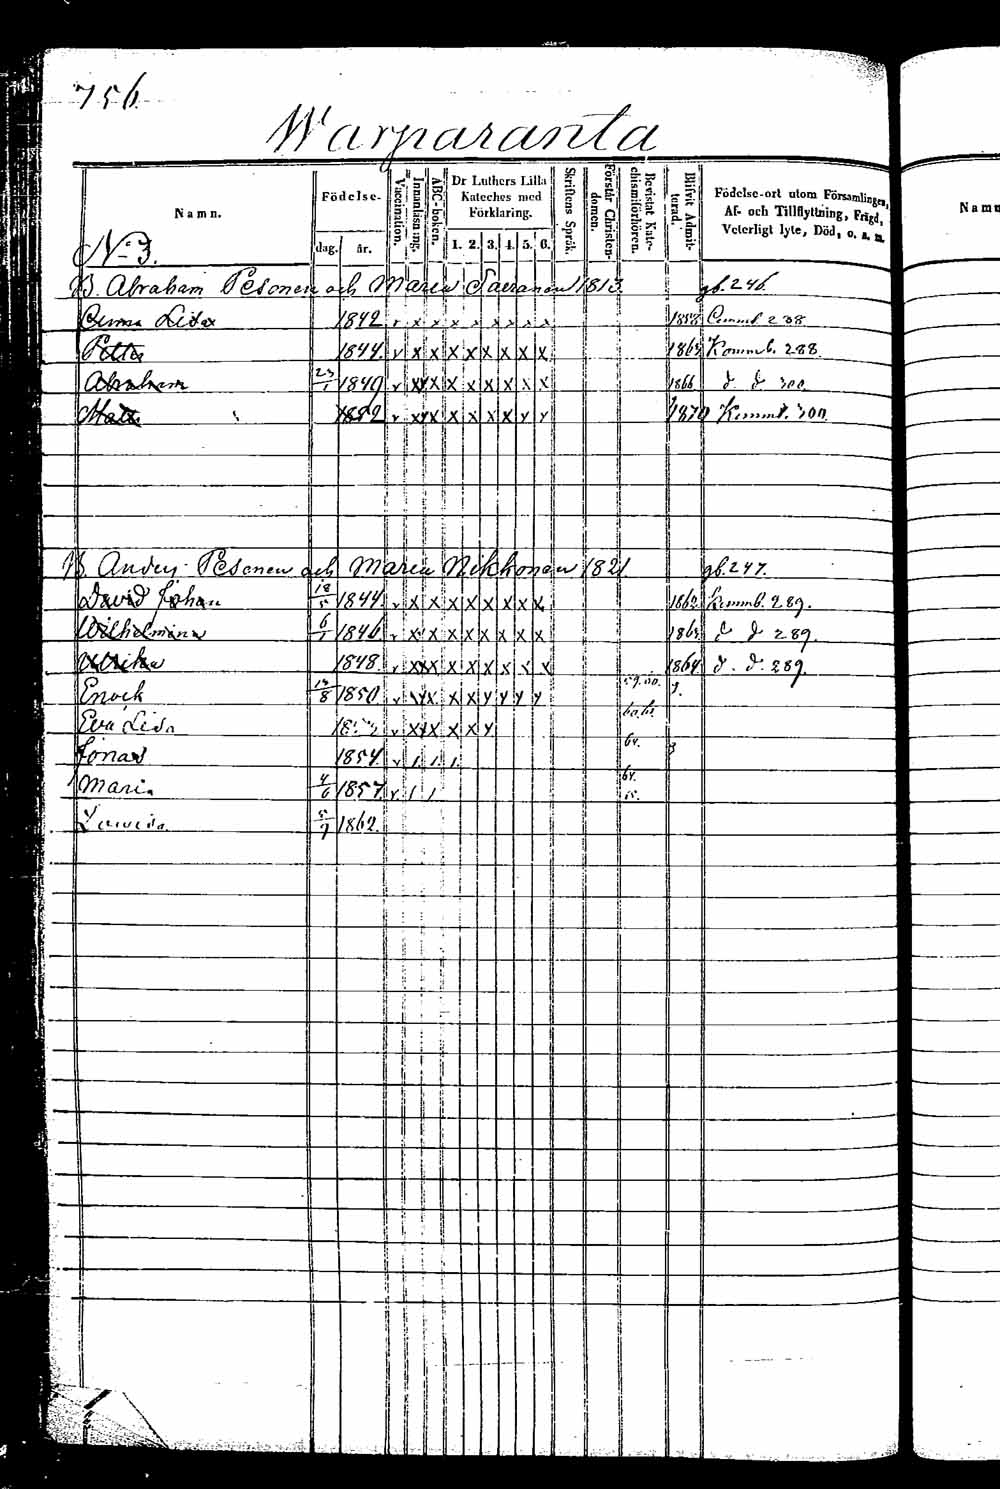 756.
Warparanta
Namn. Födelse- dag. år. Vaccination. Innanläsning. ABC-boken. Dr Luthers Lilla Kateches med Förklaring. 1. 2. 3. 4. 5. 6. Skriftens Språk. Förstår Christendomen. Bevistat Katechismiförhören. Blifvit Admitterad. Födelse-ort utom Församlingen, Af- och Tillflyttning, Frigd, Veterligt lyte, Död, o. s. m.
Namn
No 3.
B. Abraham Pesonen och Maria 1813. gb. 246.
Lisa 1842 v x x x x x x x x 1858 Commb. 238
Petter 1844. v x x x x x x x x 1863 Kommb. 288.
Abraham 23/1 1849 v x x x x x x x x 1866 d. d. 300.
Matts 1852 v x x x x x x y y 1870 Kommb. 300.
B. Anders Pesonen och Maria Nikkonen 1821 gb. 247.
David Johan 18/5 1844. v x x x x x x x x 1862 Kommb. 289.
Wilhelmina 6/1 1846. v x x x x x x x x 1863 d d 289.
Ulrika 1848. v x x x x x x x x 1864 d. d. 289.
Enock 1850. v x x x x y y y y 59.60. 9.
Eva Lisa v x x x x y 60.61.
Jonas 1854. v 64. 3
Maria 4/6 1857. v 64. 65.
5/9 1862.